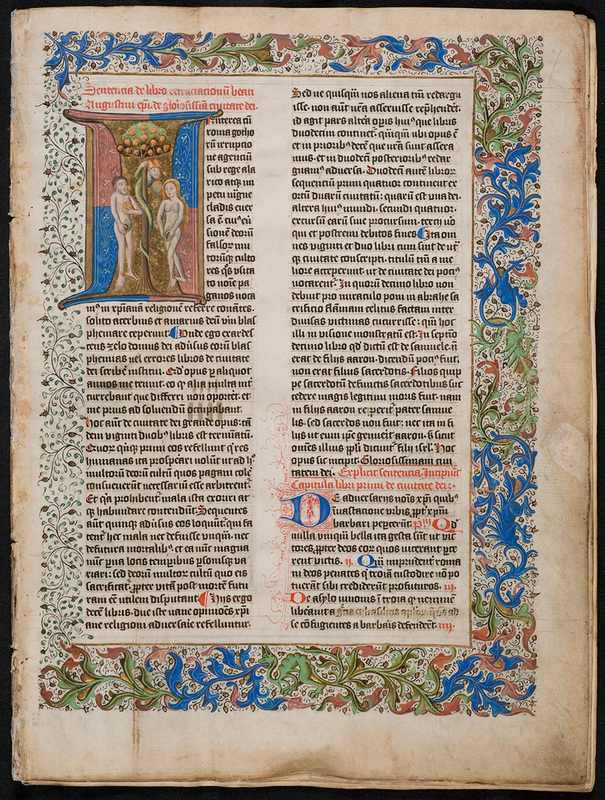 Sentencia de libro retractacionū beati
Augustini ep̄i de gloriosissīa ciuitate dei.
Interea cū
roma gotho
rū irrupcio
ne agenciū
sub rege ala
rico atqꝫ im
petu magne
cladis euer
sa ē cuiꝰ eū
sionē deorū
falsor mul
torūqꝫ culto
res qͦs vsita
to noīe pa
ganos uoca
mꝰ in xp̄ianā religionē referre conātes.
solito acerbius et amarius deū vm̄ blas
phemare ceperunt. Unde ego exardes
cens zelo domus dei aduersus eorū blas
phemias uel errores libros de ciuitate
dei scribere institui. Qd̄ opus ꝑ aliquot
annos me tenuit. eo qͦ alia multa int̄
currebant que differri non oporteret. et
me prius ad soluendū occupabant.
Hoc autē de ciuitate dei grande opus. tā
dem viginti duobꝰ libris est terminatū.
Quorꝫ quinqꝫ primi eos refellunt qͥ res
humanas ita prosperari uolūt ut ad hͦ
multorū deorū cultū quos pagani cole
consueuerūt necessariū esse arbitrent.
Et qꝛ prohibent mala ista exoriri at
qꝫ habundare contendūt. Sequentes
aūt quinqꝫ aduersus eos loquūt. qui fa
tent hec mala nec defuisse vnquā. nec
defutura mortalibꝰ. et ea nūc magna
nūc parua locis temporibꝫ psonisqꝫ ua
riari. sed deorū multor cultū quo eis
sacrificat ꝓpter vitā post mortē futu
ram eē utilem disputant. Hijs ergo
decē libris. due iste uane opinioēs xp̄i
ane religioni aduersarie refelluntur.
Sed ne quisqm̄ nos aliena tm̄ redargu
isse. non aūt nr̄a asseruisse rep̄hendet.
id agit pars altera opis huiꝰ que libris
duodecim continet. qm̄qm̄ ubi opus ē
et in prioribꝫ decē que nr̄a sunt assera
mus. et in duodecī posterioribꝫ redar
guamꝰ aduersa. Duodecī autē libror
sequenciū primi quatuor continent ex
ortū duarū ciuitatū. quarū est vna dei.
altera huiꝰ mundi. secundi quatuor.
excursū earū siue procursum. tercij uo
qui et postremi debitos fines. Ita om
nes viginti et duo libri cum sint de utͣ
qꝫ ciuitate conscripti. titulū tm̄ a me
liore acceperunt. ut de ciuitate dei pociꝰ
uocarent. In quorū decimo libro non
debuit pro miraculo poni in abrahe sa
crificio flāmam celitus factam inter
diuisas victimas cucurrisse. qm̄ hoc
illi in visione monstratū est. In septīo
decimo libro qd̄ dictū est de samuele. n̄
erat de filijs aaron. dicendū pociꝰ fuit.
non erat filius sacerdotis. Filios quip
pe sacerdotū defunctis sacerdotibus suc
cedere magis legitimi moris fuit. nam
in filijs aaron reperit pater samue
lis. sed sacerdos non fuit. nec ita in fi
lijs ut eum ip̄e genuerit aaron. s; sicut
omēs illius ppli dicunt filij isrl̄. Hoc
opus sic incipit. Gloriosissimam ciui
tatem dei. Explicit sentencia. Incipiūt
Capitula libri primi de ciuitate dei.
De aduersarijs noīs xp̄i quibꝰ
in vastacione vrbis. ꝓpt xp̄m
barbari peꝑcerūt. pͥmꝫ Qd̄
nulla vnqm̄ bella ita gesta sūt ut vic
tores. ꝓpter deos eor quos uicerant ꝑce
rent victis. ij. Qm̄ imprudent̄ roma
ni deos penates qͥ troiā custodire nō po
tuerāt sibi crediderūt profuturos. iij.
De asylo iunonis ī troia qꝫ neminē
liberauit a
se cōfugientes a barbaris defenderet. iiij.